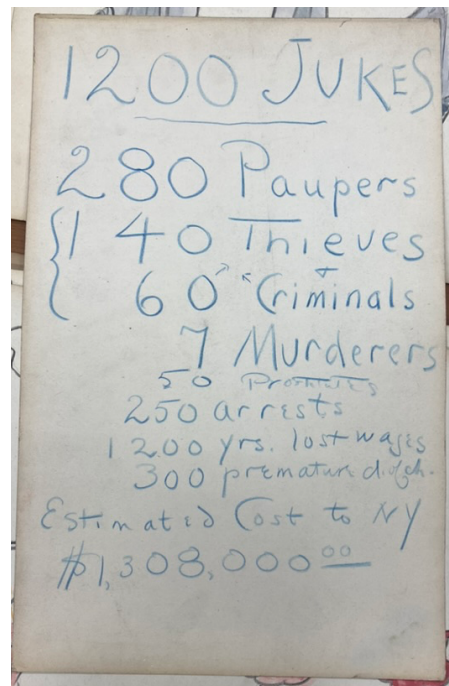 1200 JUKES
280 Paupers
140 Thieves
60 "Criminals
7 Murderers
50
250 arrests
1200 yrs. lost wages
300 premature
Estimated Cost to NY
$1,308,000.00